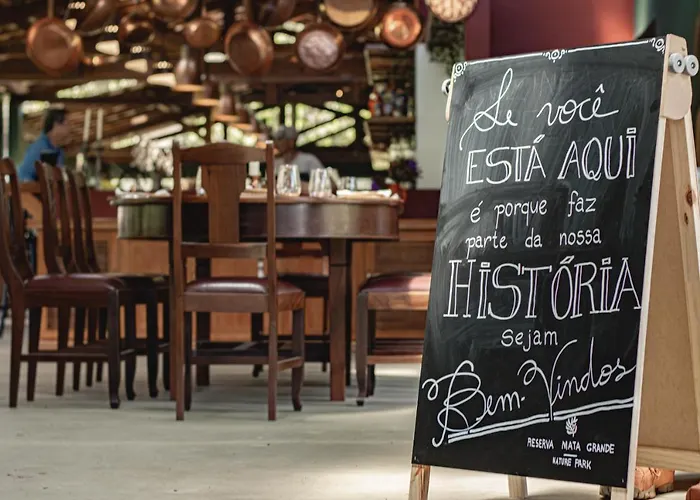 Se você
ESTÁ AQUI
é porque faz
parte da nossa
HISTÓRIA
Sejam
Bem-Vindos
RESERVA MATA GRANDE
NATURE PARK